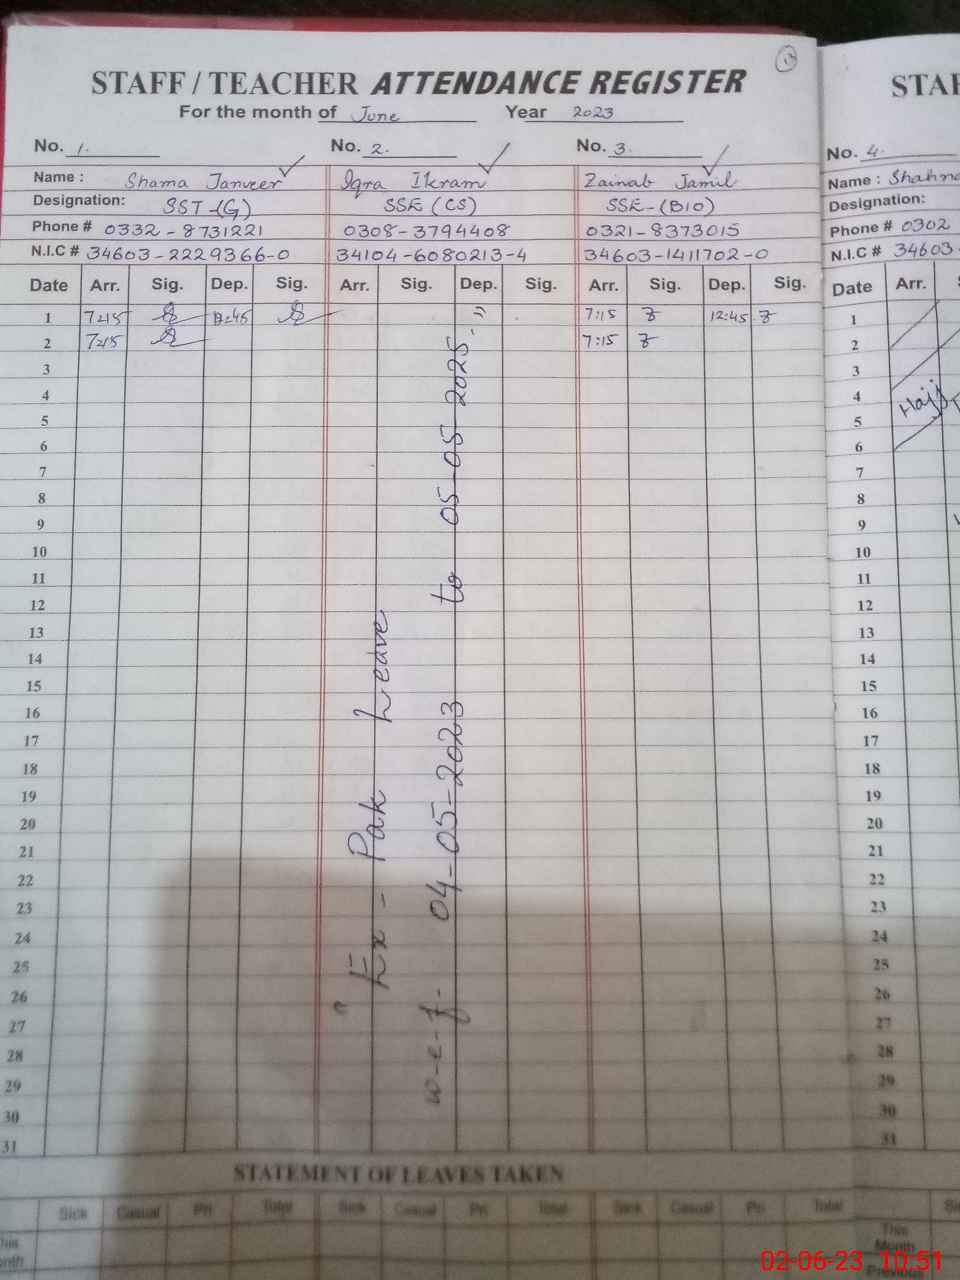 STAFF / TEACHER ATTENDANCE REGISTER
For the month of June Year 2023
No. 1. No. 2. No. 3.
Name : Shama Tanveer Iqra Ikram Zainab Jamil
Designation: SST-(G) SSE (CS) SSE-(BIO)
Phone # 0332-8731221 0308-3794408 0321-8373015
N.I.C # 34603-2229366-0 34104-6080213-4 34603-1411702-0
Date Arr. Sig. Dep. Sig. Arr. Sig. Dep. Sig. Arr. Sig. Dep. Sig.
1 7:15 12:45 7:15 Z 12:45 Z
2 7:15 7:15 Z
3
4
5
6
7
8
9
10
11
12
13
14
15
16
17
18
19
20
21
22
23
24
25
26
27
28
29
30
31
" Ex - Pak Leave
w-e-f- 04-05-2023 to 05-05-2025-"
STATEMENT OF LEAVES TAKEN
Sick Casual Pri Total Sick Casual Pri Total Sick Casual Pri Total
STAF
No. 4.
Name : Shahna
Designation:
Phone # 0302
N.I.C # 34603-
Date Arr.
1
2
3
4
5
6
Hajj
7
8
9
10
11
12
13
14
15
16
17
18
19
20
21
22
23
24
25
26
27
28
29
30
31
This
Month
Previous
02-06-23 10:51